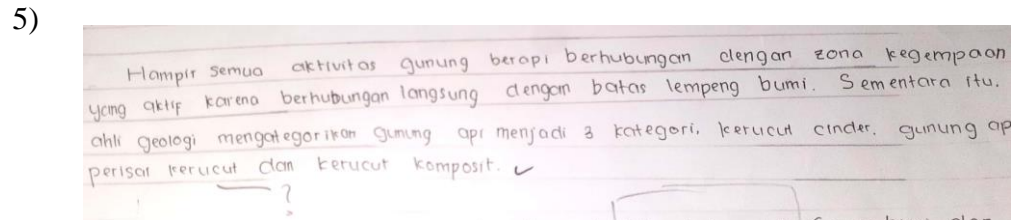 5)
Hampir semua aktivitas gunung berapi berhubungan dengan zona kegempaan
yang aktif karena berhubungan langsung dengan batas lempeng bumi. Sementara itu.
ahli geologi mengategorikan gunung api menjadi 3 kategori, kerucut cinder. gunung ap
perisai kerucut dan kerucut komposit. ✓
?